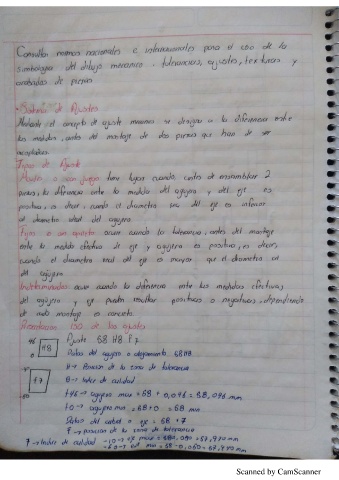 Consultar normas nacionales e internacionales para el uso de la
simbologia del dibujo mecanico. tolerancias, ajustes, texturas y
acabados de piezas
Sistema de Ajustes
Mediante el concepto de ajuste mecanico se designa a la diferencia entre
las medidas, antes del montaje de dos piezas que han de ser
acopladas.
Tipos de Ajuste
Movil o con juego tiene lugar cuando, antes de ensamblar 2
piezas, la diferencia entre la medidas del agujero y del eje es
positiva, es decir, cuando el diametro real del eje es inferior
al diametro real del agujero
Fijos o con aprieto ocurre cuando la tolerancia, antes del montaje
entre la medida efectiva de eje y agujero es positiva, es decir,
cuando el diametro real del eje es mayor que el diametro del
agujero
Indeterminados ocurre cuando la diferencia entre las medidas efectivas
del agujero y eje pueden resultar positivas o negativas, dependiendo
de cada montaje en concreto.
ISO de los ajustes
+46 H8 Ajuste 68 H8 f7
0 Datos del agujero o alojamiento 68H8
H → Posición de la zona de tolerancia
f7 8 → Indice de calidad
+46 → agujero max = 68 + 0,046 = 68,046 mm
+0 → agujero min = 68 + 0 = 68 mm
Datos del eje = 68 f7
f → posición de la zona de tolerancia
7 → Indice de calidad
Scanned by CamScanner